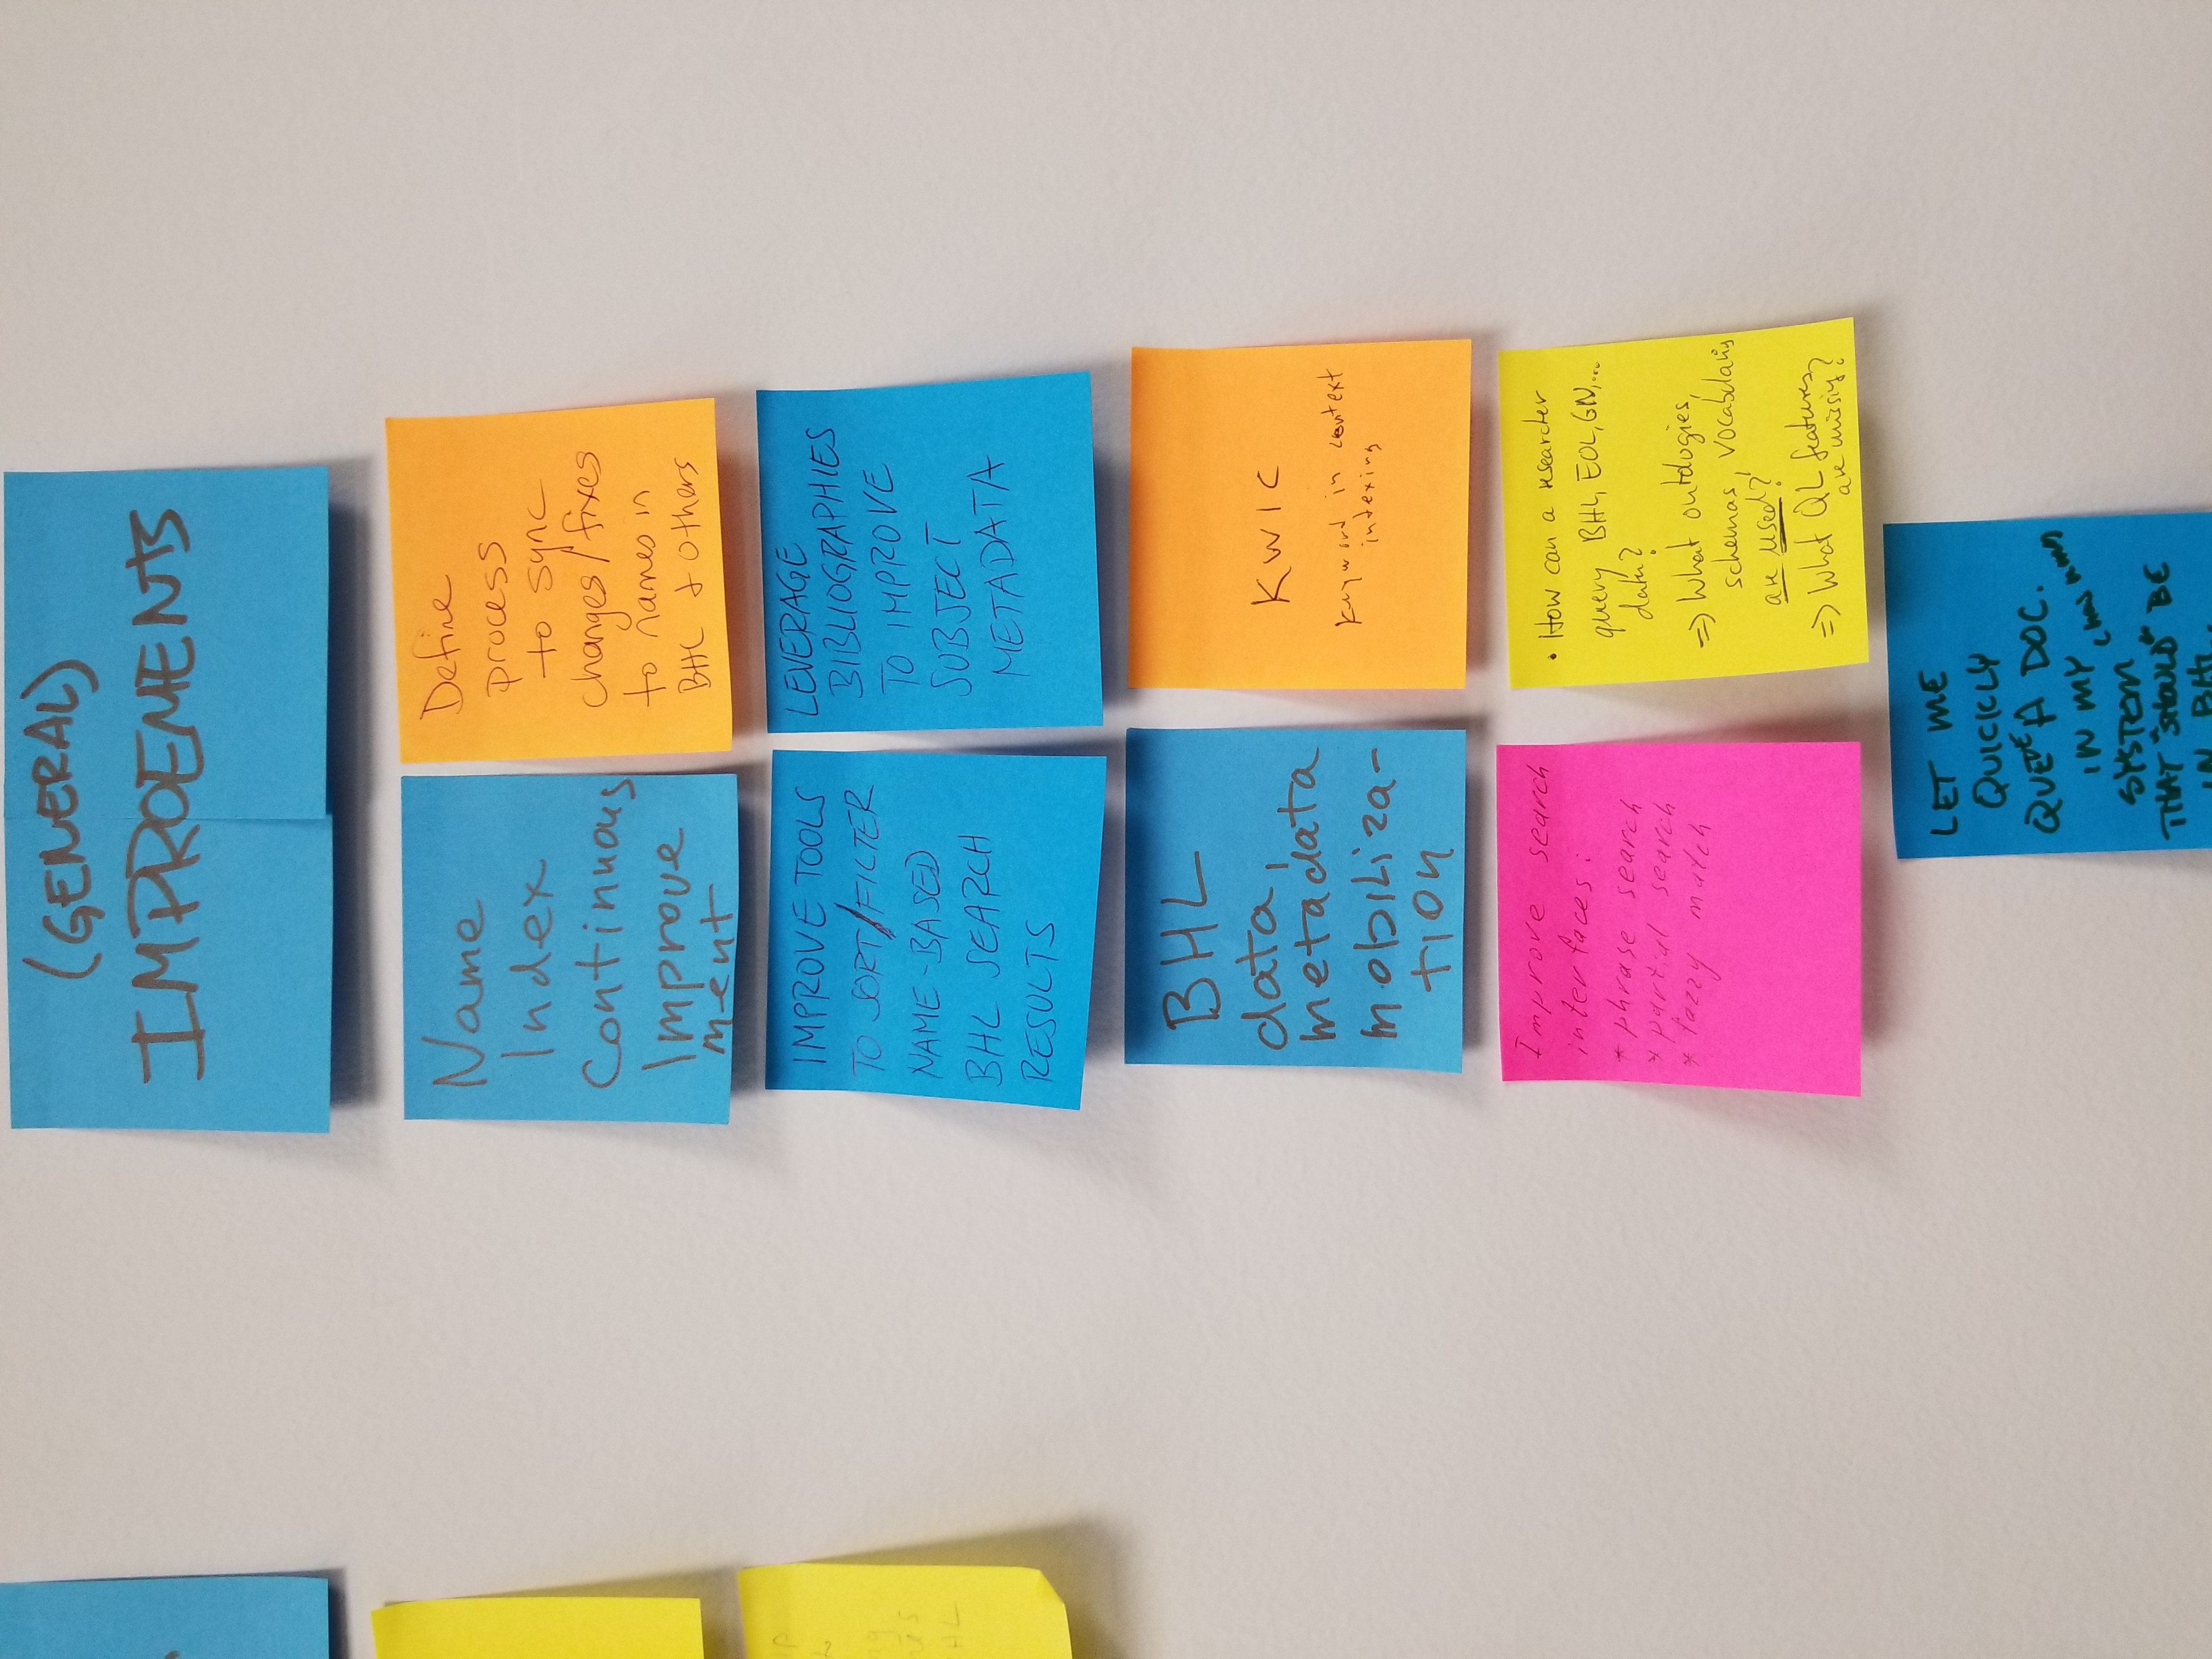 (GENERAL)
IMPROEMENTS
Name
Index
Continuous
Improve
ment
Define
process
to sync
changes/fixes
to names in
BHL & others
IMPROVE TOOLS
TO SORT/FILTER
NAME-BASED
BHL SEARCH
RESULTS
LEVERAGE
BIBLIOGRAPHIES
TO IMPROVE
SUBJECT
METADATA
BHL
data,
metadata
mobiliza-
tion
KWIC
keyword in context
indexing
Improve search
interfaces:
* phrase search
* partial search
* fazzy match
• How can a researcher
query BHL, EOL, GN,...
data?
=> What ontologies,
schemas, vocabularies
are used?
=> What QL features
are missing?
LET ME
QUICKLY
QUEUE A DOC.
IN MY
SYSTEM
THAT "SHOULD" BE
IN BHL.
ip
ng
HL